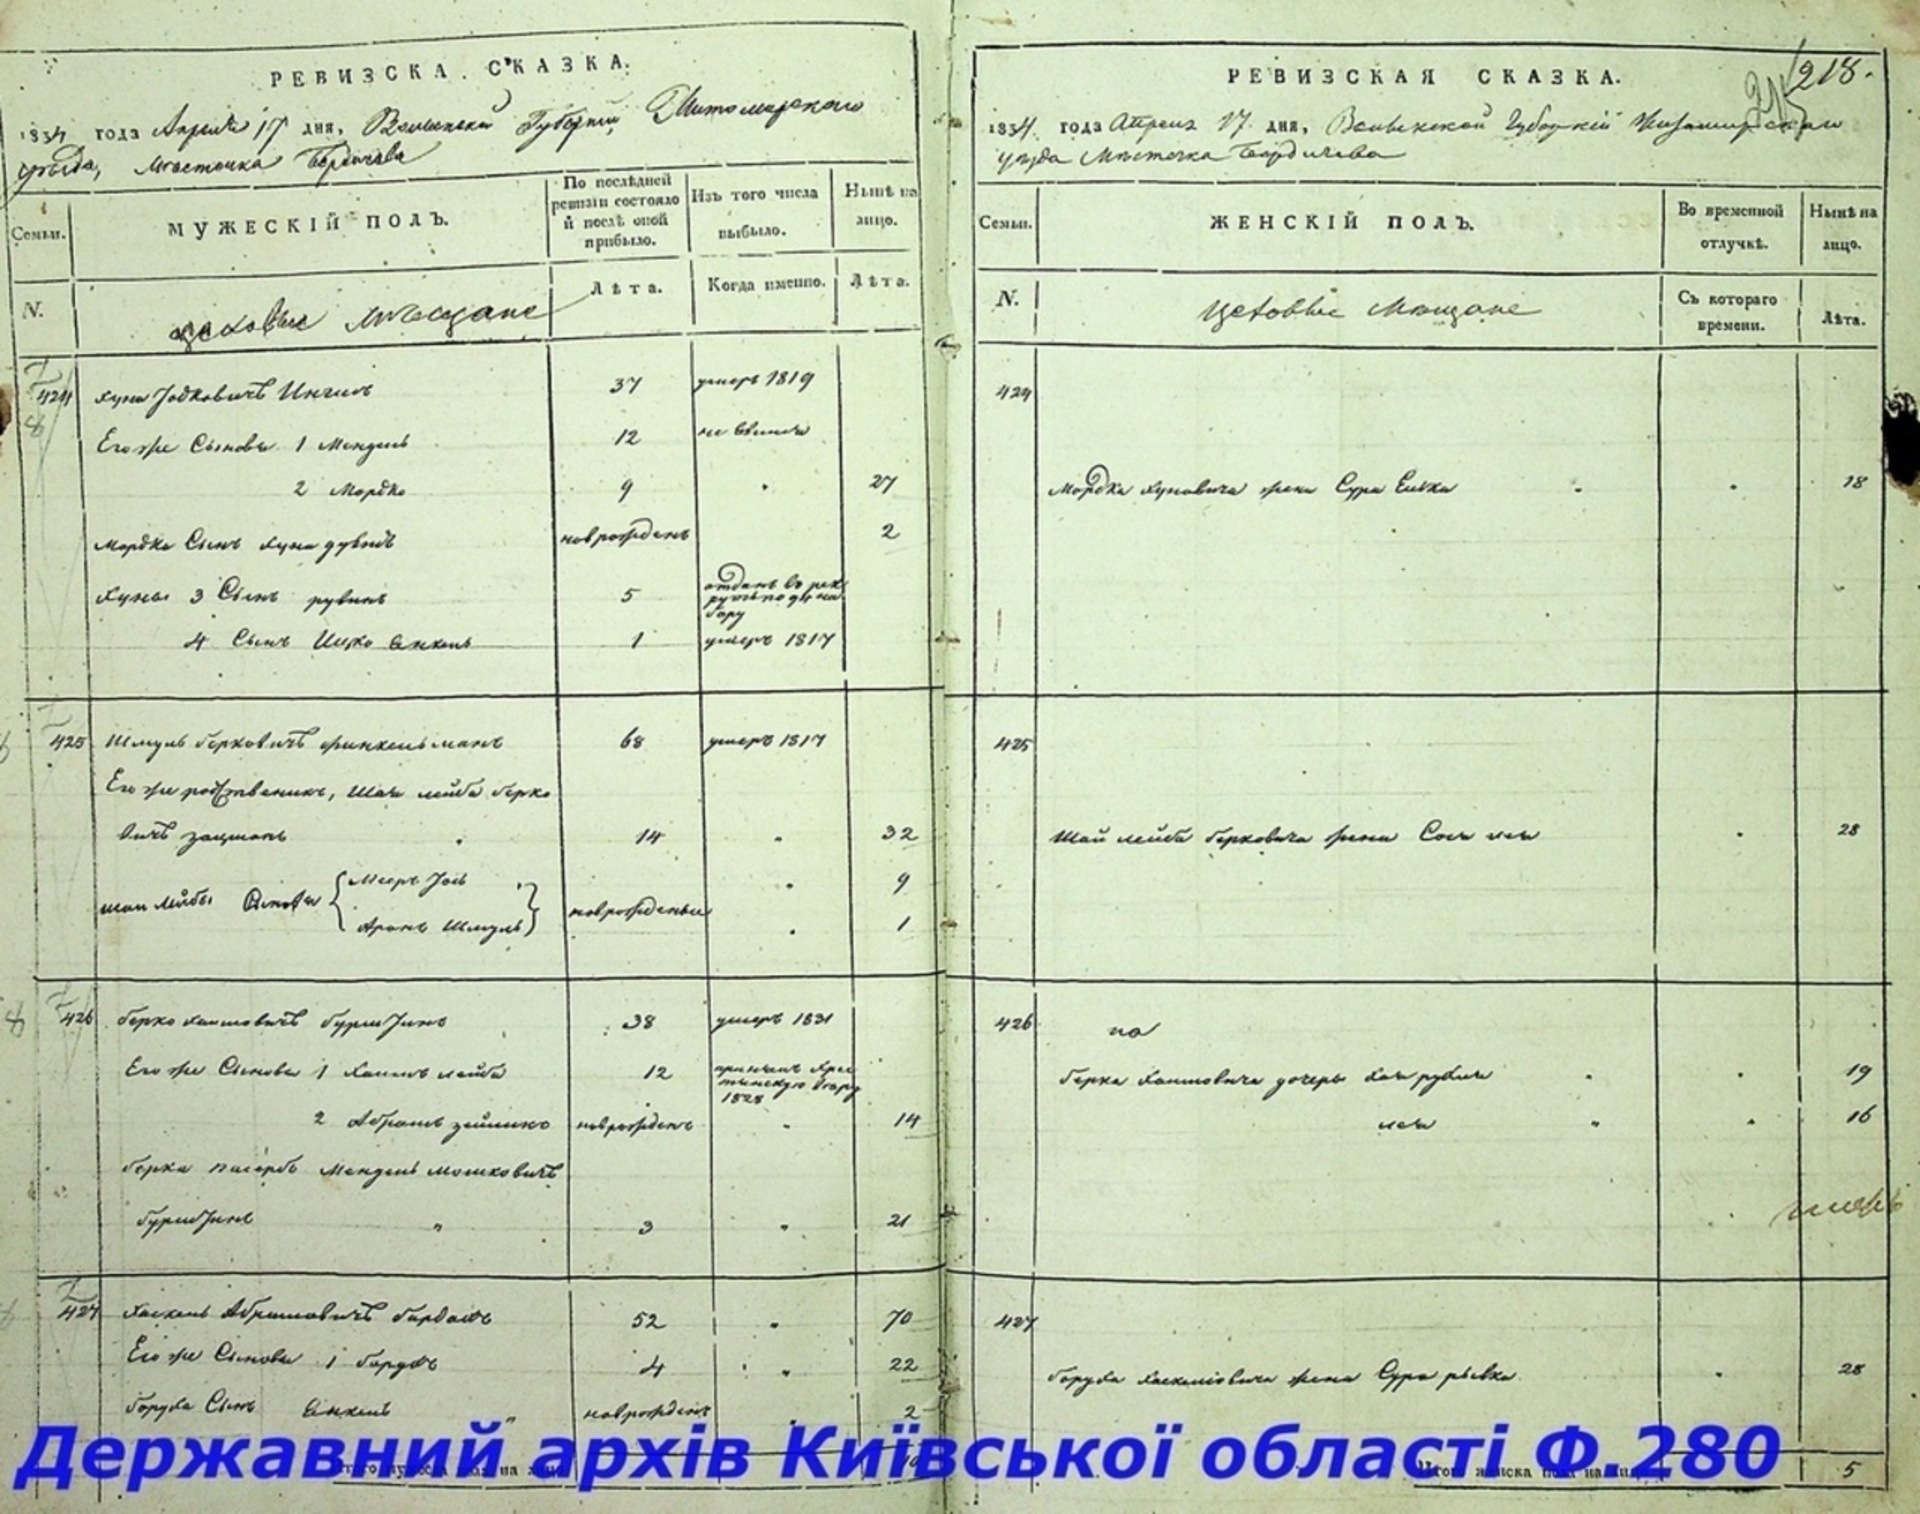 РЕВИЗСКА. СКАЗКА.
1834 года Апреля 17 дня, Волынской Губернии, Житомирского
уезда, Местечка Бердичева
Семьи.
МУЖЕСКІЙ ПОЛЪ.
По послѣдней ревизіи состояло и послѣ оной прибыло.
Изъ того числа выбыло.
Нынѣ на лицо.
N.
Цеховые Мещане
Лѣта.
Когда именно.
Лѣта.
424 Хуна Іодковичъ 37 умеръ 1819
Его же Сыновья 1 Мендель 12
2 Мордко 9 " 27
Мордка Сынъ Хуна дувидъ новорожденъ 2
Хуны 3 Сынъ рувинъ 5 отданъ въ рекруты по набору
4 Сынъ Ицко Янкель 1 умеръ 1817
425 Шмуль берковичъ финкельманъ 68 умеръ 1817
Его же родственникъ, Шая лейба берко
вичъ 14 " 32
шаи лейбы Сыновья { Мееръ Іось } новорожденые " 9
Аронъ Шмуль " 1
426 берко Хаимовичъ 38 умеръ 1831
Его же Сыновья 1 Хаимъ лейба 12 принялъ Христианскую веру 1828
2 Абрамъ новорожденъ " 14
берка пасербъ Мендель мошковичъ
" 3 " 21
427 Хаскель Абрамовичъ 52 " 70
Его же Сыновья 1 борухъ 4 " 22
боруха Сынъ Янкель " новорожденъ " 2
Итого мужеска пола на лицо
РЕВИЗСКАЯ СКАЗКА.
218.
1834 года Апреля 17 дня, Волынской Губернiи Житомирскаго
уезда Местечка Бердичева
Семьи.
ЖЕНСКІЙ ПОЛЪ.
Во временной отлучкѣ.
Нынѣ на лицо.
N.
Цеховые Мещане
Съ котораго времени.
Лѣта.
424
Мордка Хуновича жена Сура " " 18
425
Шаи лейба берковича жена Сося лея " 28
426
берка Хаимовича дочери Хая рухля " " 19
лея " " 16
427
боруха Хаскелювича жена Сура рывка " 28
Итого женска пола на лицо 5
Державний архів Київської області Ф.280